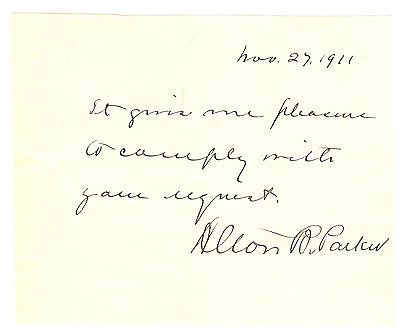 Nov. 27, 1911
It gives me pleasure
to comply with
your request.
Alton B. Parker